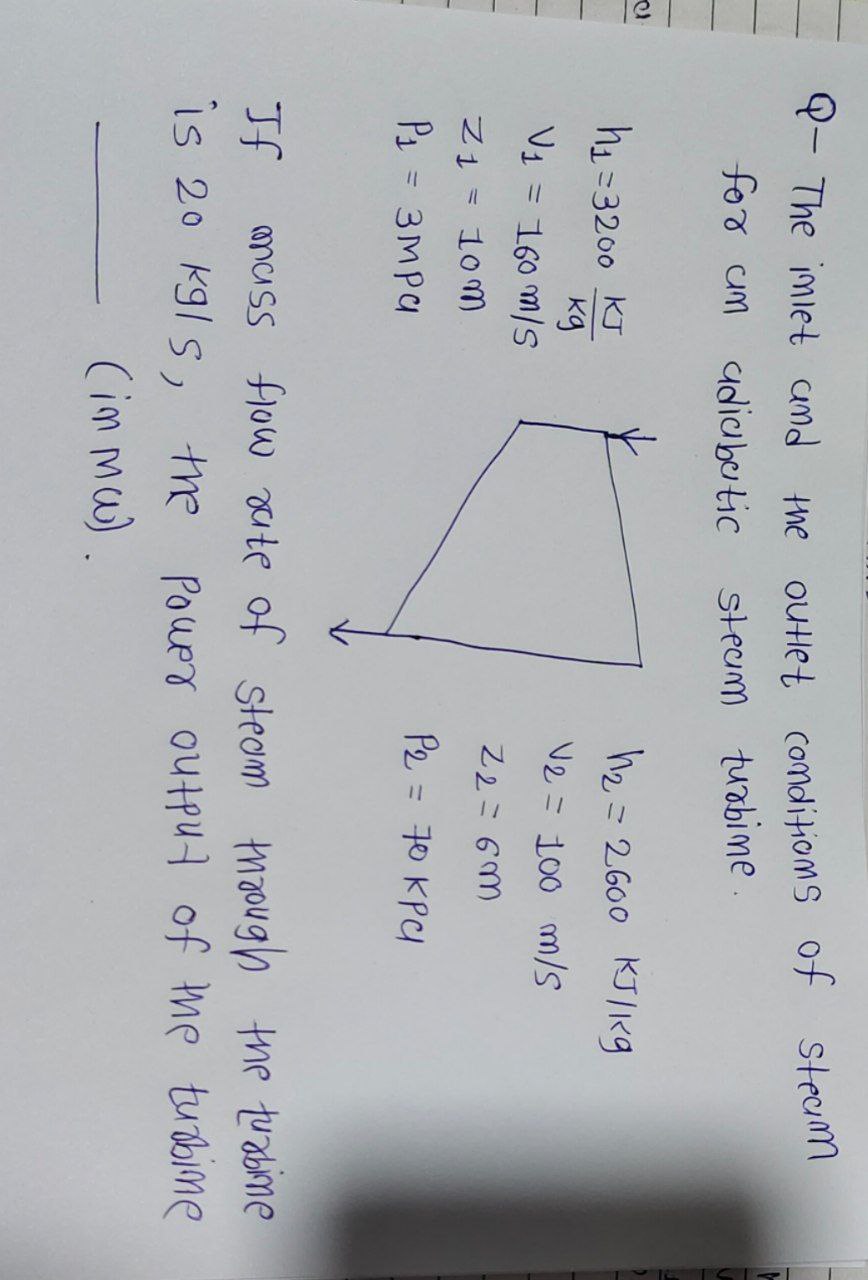 Q- The inlet and the outlet conditions of steam
for an adiabatic steam turbine.
h₁ = 3200 KJ/kg
V₁ = 160 m/s
Z₁ = 10m
P₁ = 3MPa
h₂ = 2600 KJ/kg
V₂ = 100 m/s
Z₂ = 6m
P₂ = 70 KPa
If mass flow rate of steam through the turbine
is 20 kg/s, the Power output of the turbine
______ (in MW).